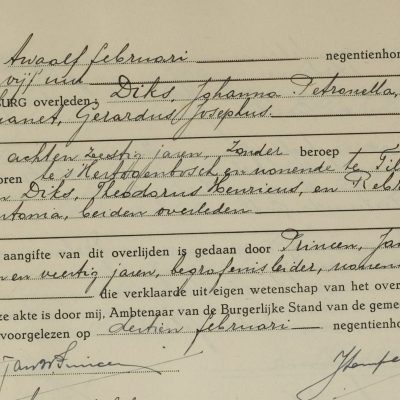 twaalf februari negentienho
vijf uur
BURG overleden: Diks, Johanna Petronella,
Gerardus Josephus.
achtenzestig jaren, zonder beroep
oren te 's Hertogenbosch en wonende te Til
n Diks, Theodorus Henricus, en
beiden overleden
aangifte van dit overlijden is gedaan door Princen, Ja
en veertig jaren, begrafenisleider, wonen
die verklaarde uit eigen wetenschap van het over
ze akte is door mij, Ambtenaar van de Burgerlijke Stand van de geme
voorgelezen op dertien februari negentienho